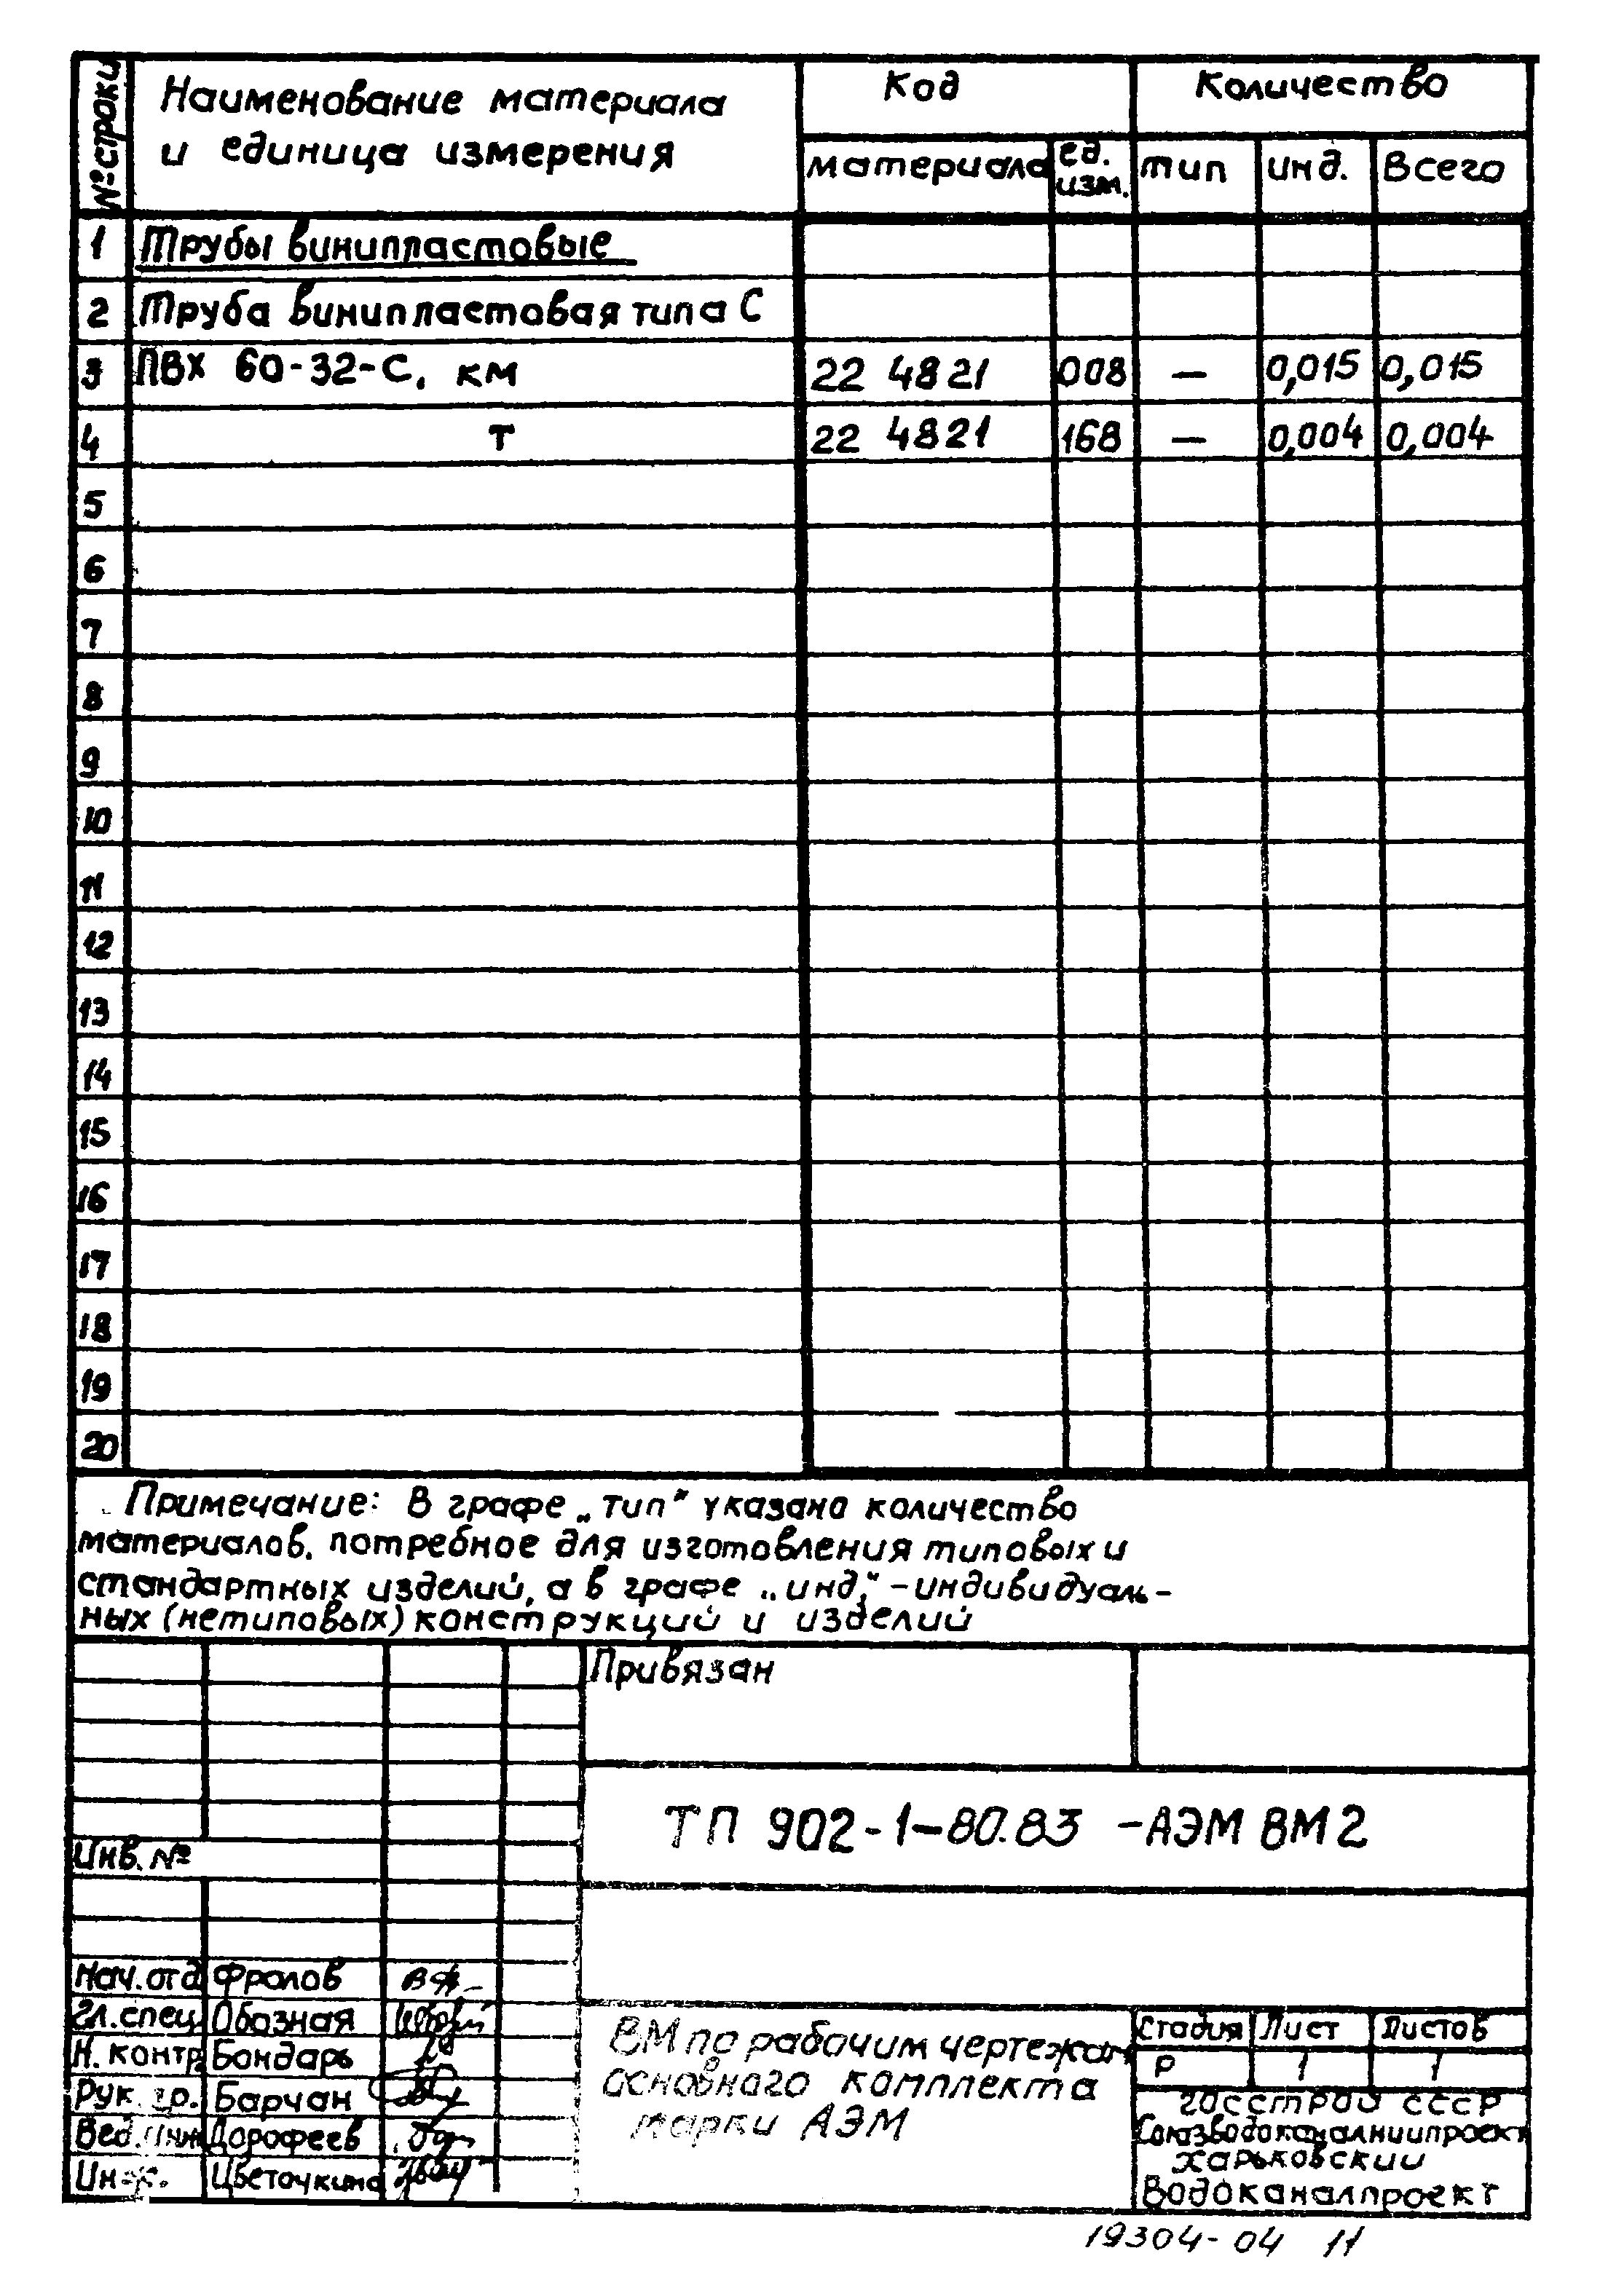 № строки
Наименование материала
и единица измерения
Код
Количество
материала
ед.
изм.
тип
инд.
Всего
1 Трубы винипластовые
2 Труба винипластовая типа С
3 ПВХ 60-32-С, км 22 4821 008 — 0,015 0,015
4 т 22 4821 168 — 0,004 0,004
5
6
7
8
9
10
11
12
13
14
15
16
17
18
19
20
Примечание: В графе „тип" указано количество
материалов, потребное для изготовления типовых и
стандартных изделий, а в графе „инд," – индивидуаль-
ных (нетиповых) конструкций и изделий
Привязан
ТП 902-1-80.83 -АЭМ ВМ2
Инв. №
Нач. отд Фролов
Гл. спец. Обозная
Н. контр. Бондарь
Рук. гр. Барчан
Вед. инж Дорофеев
Инж. Цветочкина
ВМ по рабочим чертежам
основного комплекта
марки АЭМ
Стадия Лист Листов
Р 1 1
Госстрой СССР
Союзводоканалниипроект
Харьковский
Водоканалпроект
19304-04 11